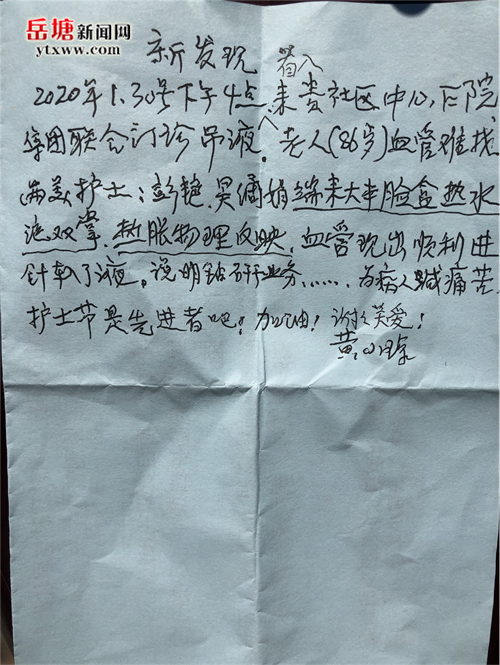 岳塘新闻网
ytxww.com
新发现
2020年1.30号下午4点.来贵社区中心,医院
集团联合门诊吊液.老人(86岁)血管难找
两美护士:彭艳.吴 娟端来大半脸盆热水
泡双掌.热胀物理反映.血管现出顺利进
针 了液。说明钻研业务……为病人缄痛苦.
护士节是先进者吧!加油!谢谢关爱!
黄